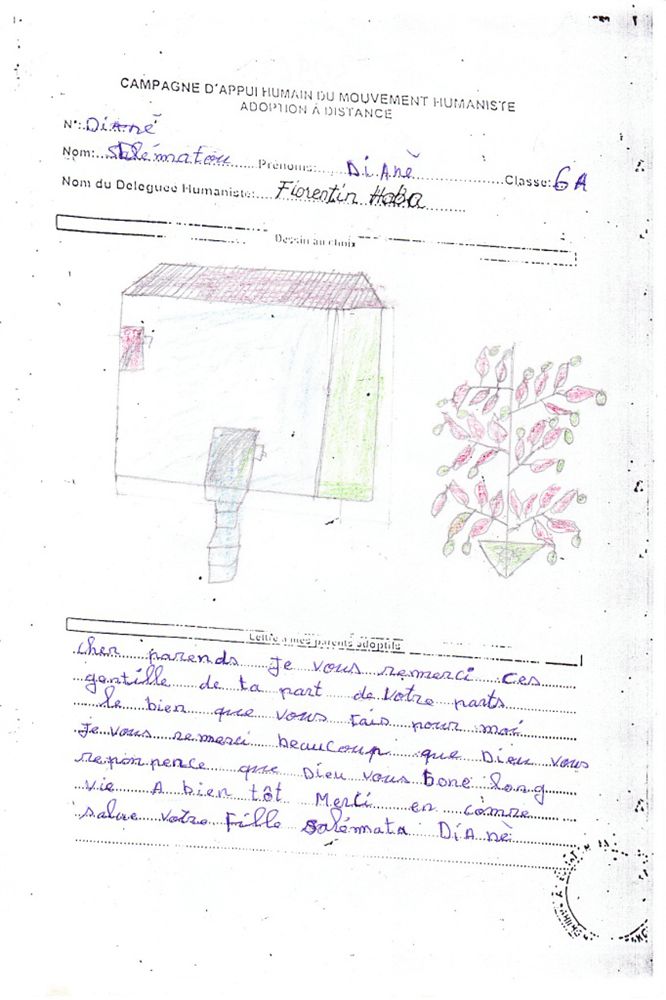 CAMPAGNE D'APPUI HUMAIN DU MOUVEMENT HUMANISTE
ADOPTION À DISTANCE
N°: Dianè
Nom: Salématou Prénoms: DiAnè Classe: 6A
Nom du Deleguée Humaniste: Florentin Haba
Dessin au choix
Lettre à mes parents adoptifs
cher parends je vous remerci ces
gentille de ta part de votre parts
le bien que vous fais pour moi
je vous remerci beaucoup que Dieu vous
reponpence que Dieu vous bone long
vie A bien tôt Merci en comre
salue votre Fille salémata DiAnè